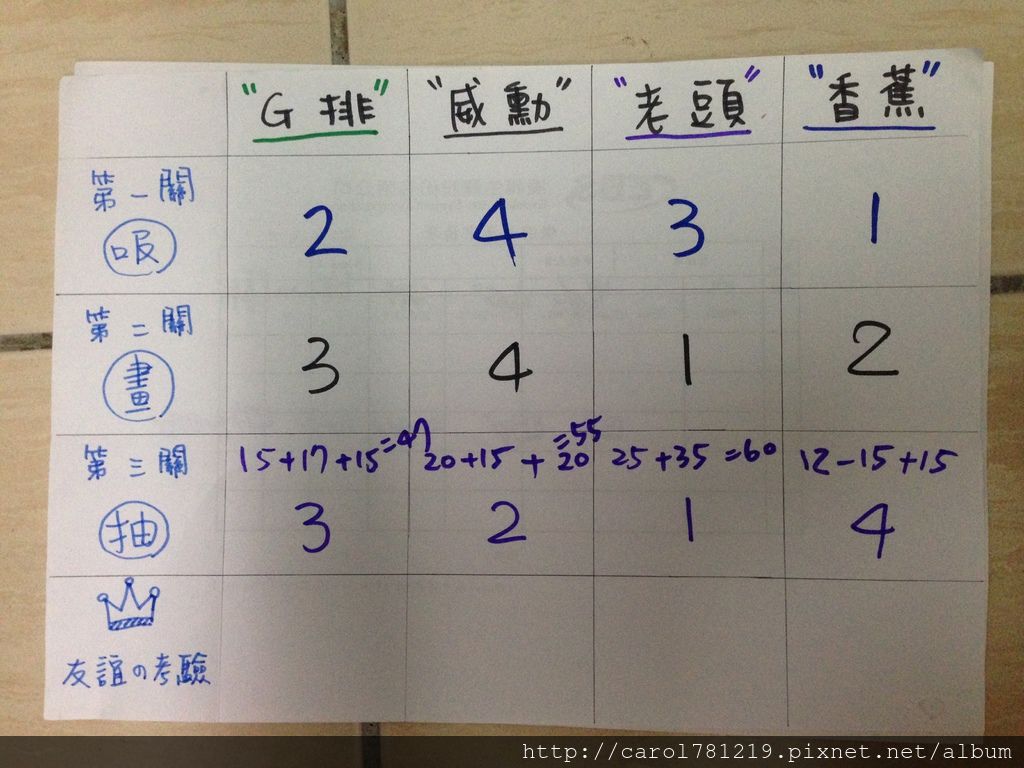 "G 排" "威勳" "老頭" "香蕉"
第一關
吸
2 4 3 1
第二關
畫
3 4 1 2
第三關
15+17+15=47 20+15+20=55 25+35=60 12-15+15
抽
3 2 1 4
友誼の考驗
http://carol781219.pixnet.net/album